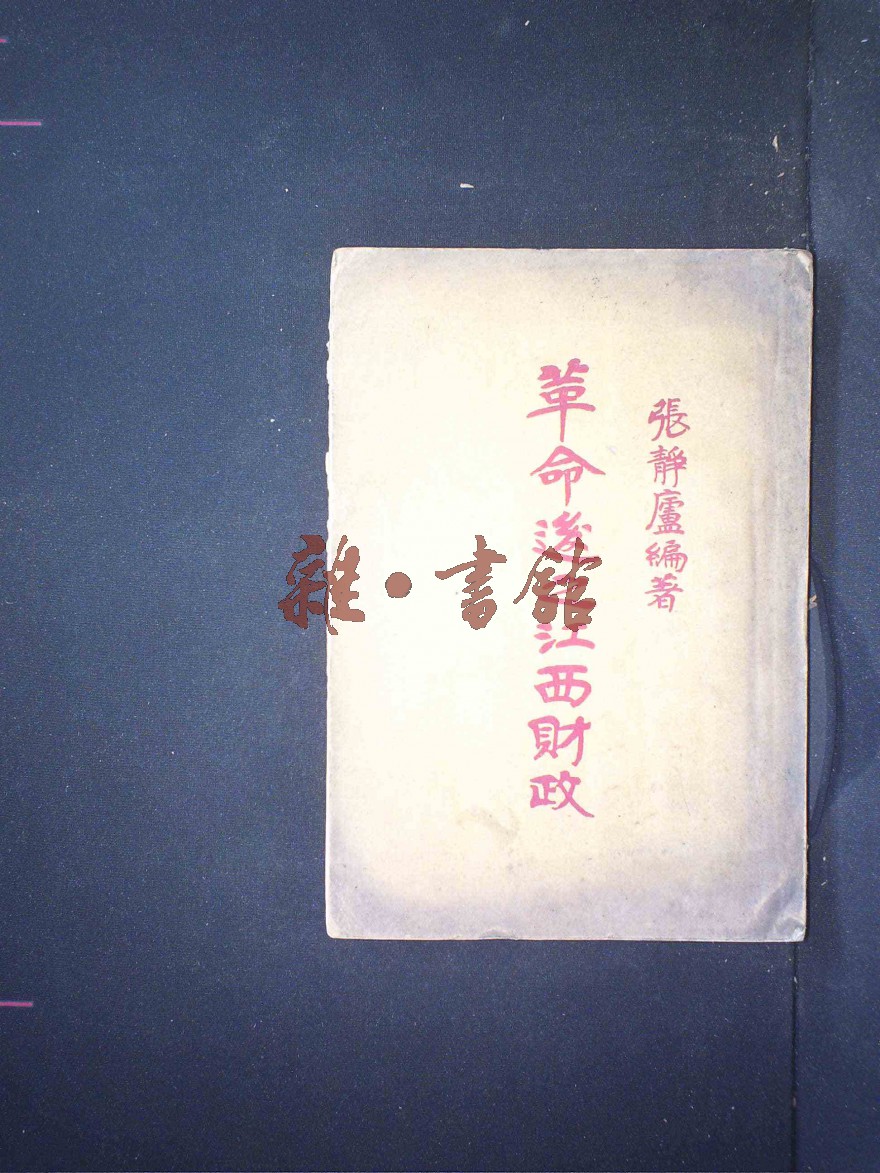 張靜廬編著
革命後之江西財政
雜·書館